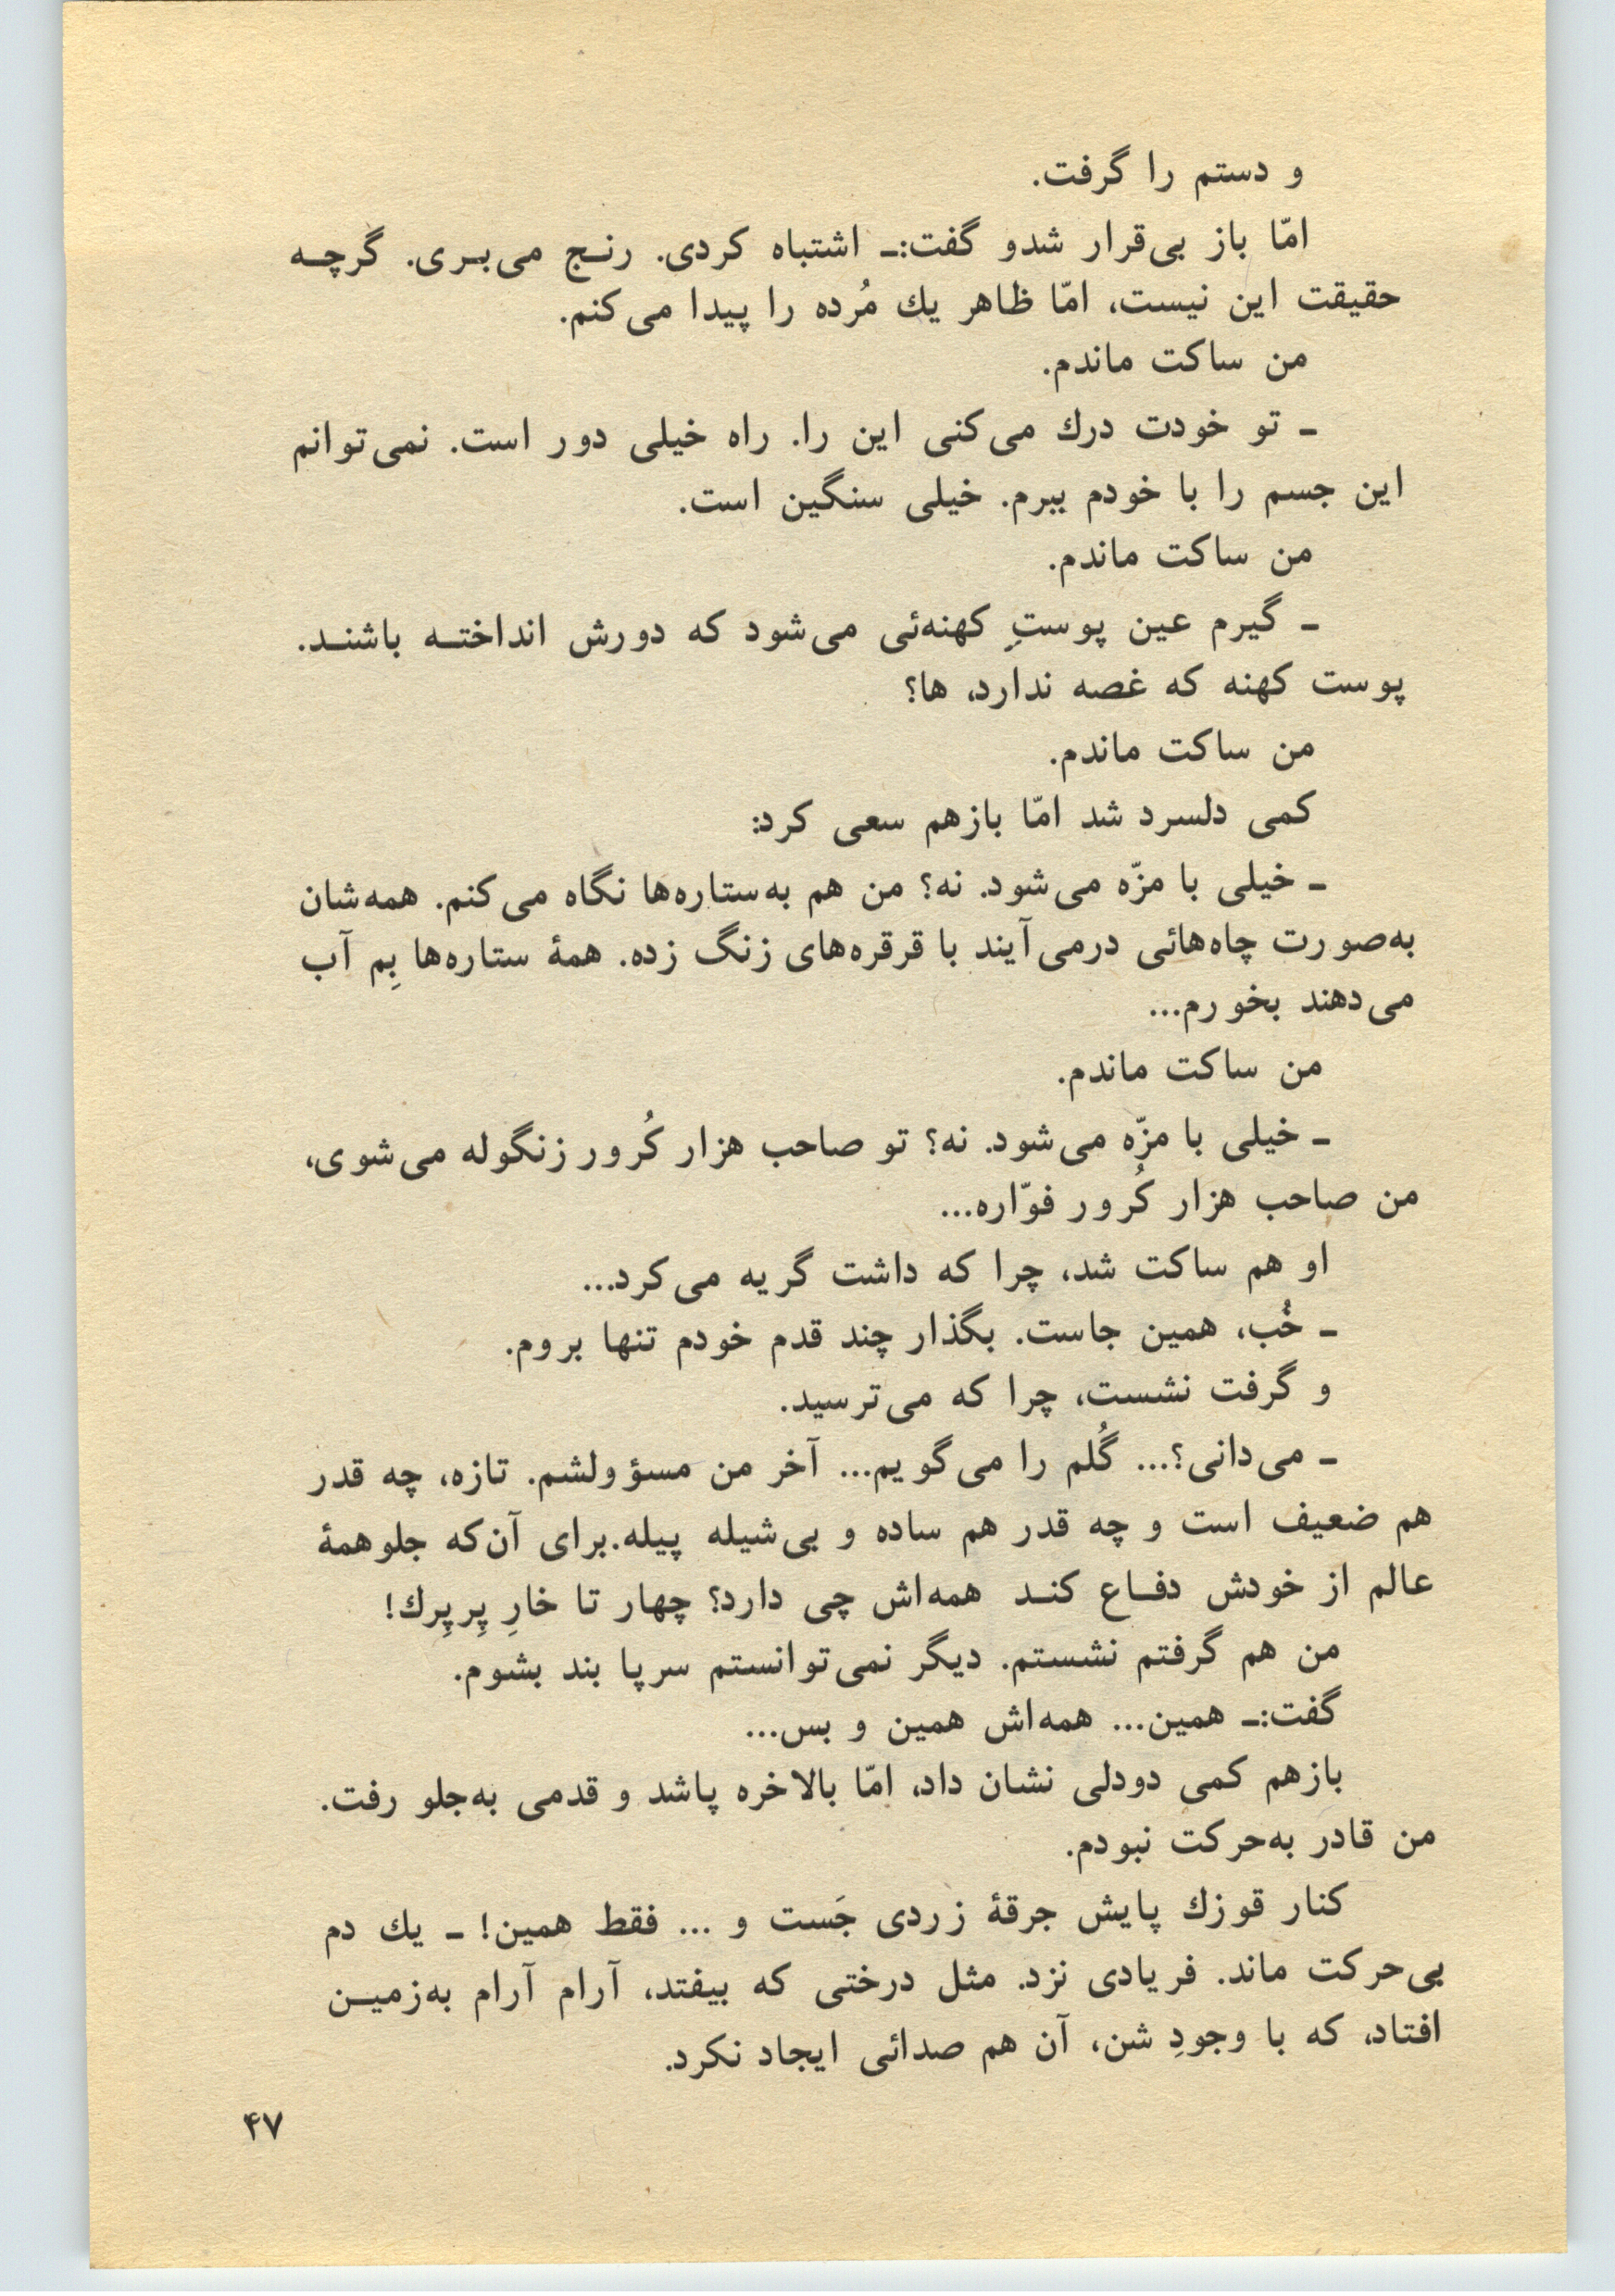 و دستم را گرفت.
امّا باز بی‌قرار شدو گفت:ـ اشتباه کردی. رنـج می‌بـری. گرچـه
حقیقت این نیست، امّا ظاهر یك مُرده را پیدا می‌کنم.
من ساکت ماندم.
ـ تو خودت درك می‌کنی این را. راه خیلی دور است. نمی‌توانم
این جسم را با خودم ببرم. خیلی سنگین است.
من ساکت ماندم.
ـ گیرم عین پوستِ کهنه‌ئی می‌شود که دورش انداختـه باشنـد.
پوست کهنه که غصه ندارد، ها؟
من ساکت ماندم.
کمی دلسرد شد امّا بازهم سعی کرد:
ـ خیلی با مزّه می‌شود. نه؟ من هم به‌ستاره‌ها نگاه می‌کنم. همه‌شان
به‌صورت چاه‌هائی درمی‌آیند با قرقره‌های زنگ زده. همهٔ ستاره‌ها بِم آب
می‌دهند بخورم...
من ساکت ماندم.
ـ خیلی با مزّه می‌شود. نه؟ تو صاحب هزار کُرور زنگوله می‌شوی،
من صاحب هزار کُرور فوّاره...
او هم ساکت شد، چرا که داشت گریه می‌کرد...
ـ خُب، همین جاست. بگذار چند قدم خودم تنها بروم.
و گرفت نشست، چرا که می‌ترسید.
ـ می‌دانی؟... گُلم را می‌گویم... آخر من مسؤولشم. تازه، چه قدر
هم ضعیف است و چه قدر هم ساده و بی‌شیله پیله.برای آن‌که جلوهمهٔ
عالم از خودش دفـاع کنـد همه‌اش چی دارد؟ چهار تا خارِ پِرپِرك!
من هم گرفتم نشستم. دیگر نمی‌توانستم سرپا بند بشوم.
گفت:ـ همین... همه‌اش همین و بس...
بازهم کمی دودلی نشان داد، امّا بالاخره پاشد و قدمی به‌جلو رفت.
من قادر به‌حرکت نبودم.
کنار قوزك پایش جرقهٔ زردی جَست و ... فقط همین! ـ یك دم
بی‌حرکت ماند. فریادی نزد. مثل درختی که بیفتد، آرام آرام به‌زمیـن
افتاد، که با وجودِ شن، آن هم صدائی ایجاد نکرد.
۴۷